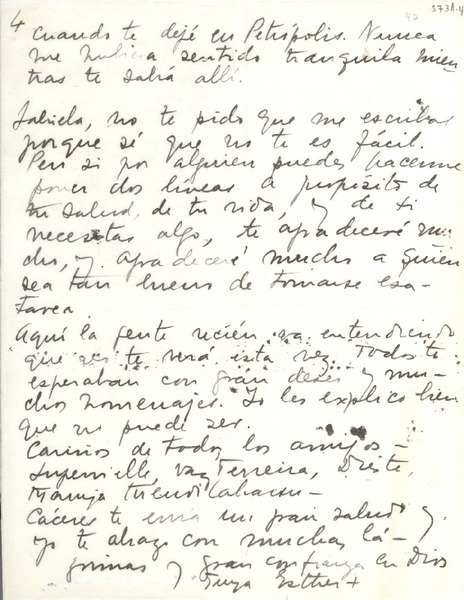 4
47
573A.4
cuando te dejé en Petrópolis. Nunca
me hubiera sentido tranquila mien
tras te sabía allí.
Gabriela, no te pido que me escribas
porque sé que no te es fácil.
Pero si por alguien puedes hacerme
poner dos líneas a propósito de
tu salud, de tu vida, y de si
necesitas algo, te agradeceré mu
cho, y agradeceré mucho a quien
sea tan bueno de tomarse esa
tarea.
Aquí la gente recién va entendiendo
que no te verá esta vez. Todos te
esperaban con gran deseo y mu-
chos homenajes. Yo les explico bien
que no puede ser.
Cariños de todos los amigos -
Supervielle, Vaz Ferreira, Dieste,
Maruja Mendilaharsu -
Cáceres te envía un gran saludo y
yo te abrazo con muchas lá-
grimas y gran confianza en Dios
Tuya Esther +